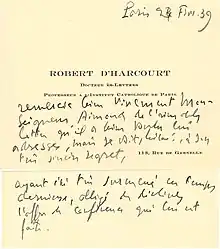 Paris 24 Févr. 39
ROBERT D'HARCOURT
DOCTEUR ÈS-LETTRES
PROFESSEUR A L'INSTITUT CATHOLIQUE DE PARIS
remercie bien vivement Mon-
seigneur de l'aimable
lettre qu'il a bien voulu lui
adresser, mais se voit, hélas, à son
très regret,
112, RUE DE GRENELLE
ayant été très surmené ces temps
derniers, obligé de décliner
l'offre de conférence qui lui est
faite.